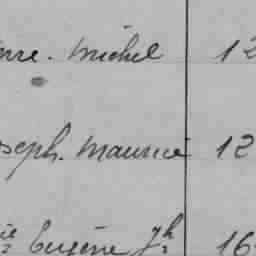 rre. Michel 12
oseph. Maurice 12
ie Eugène Jh 16